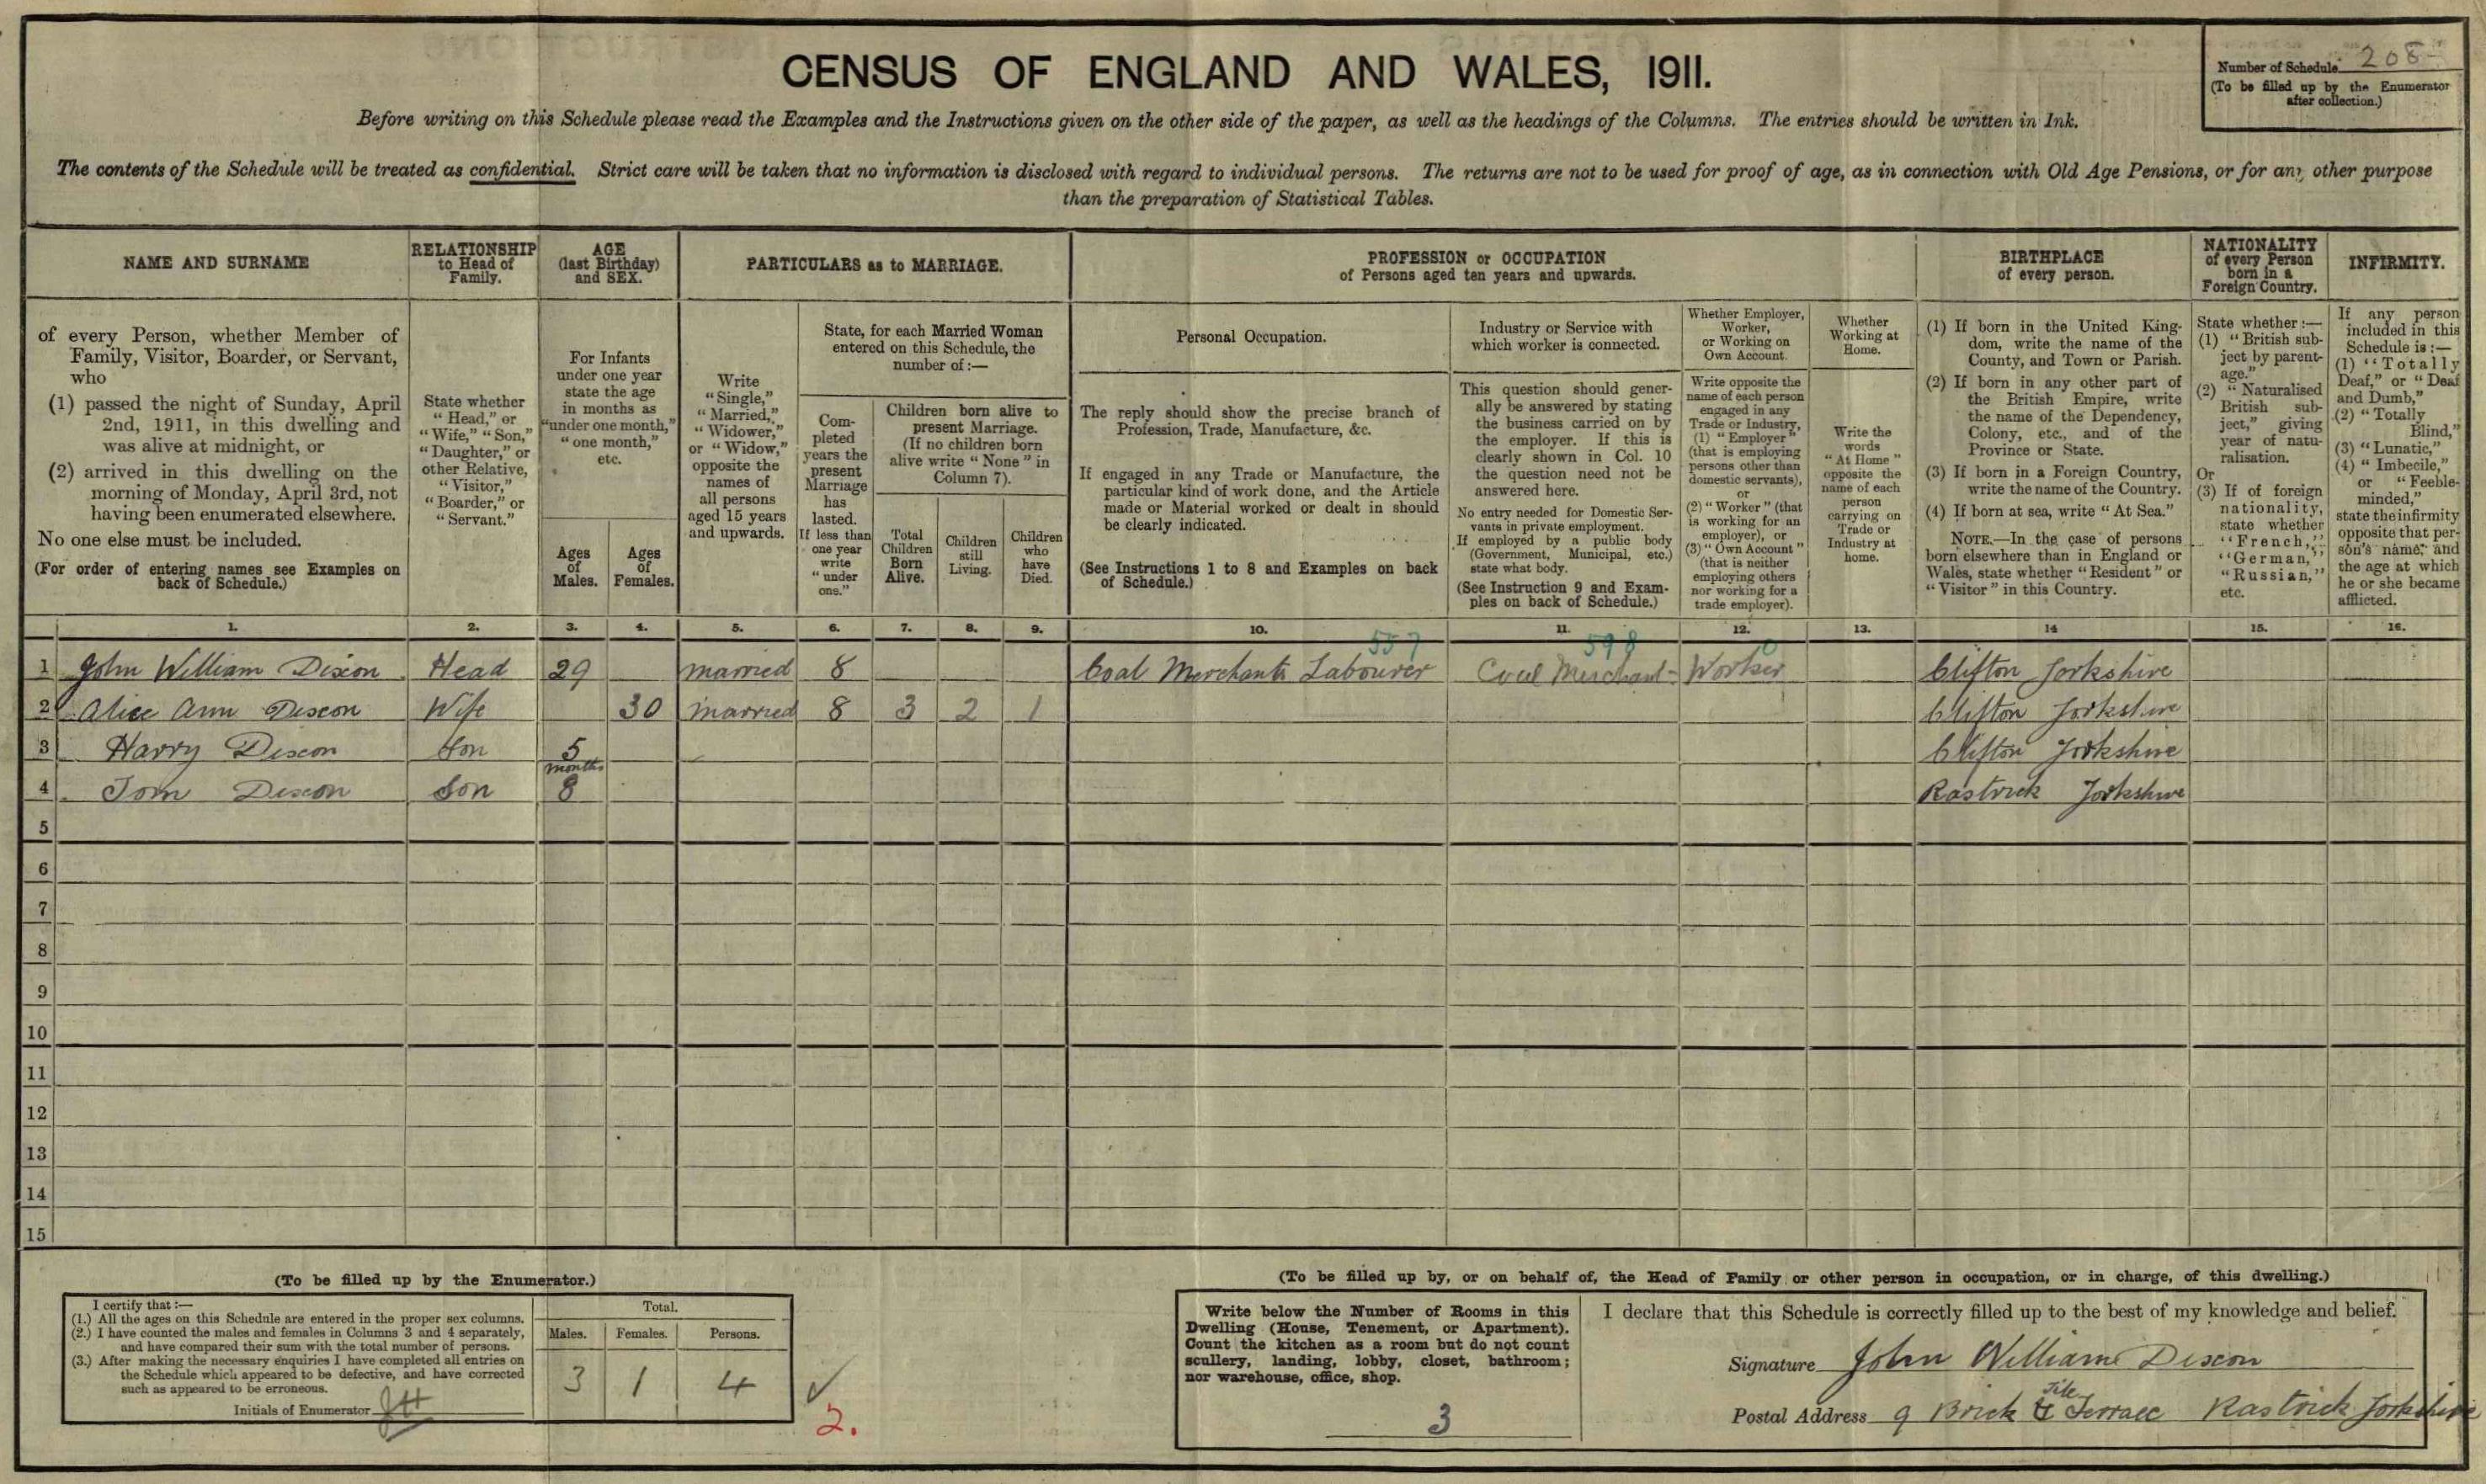 CENSUS OF ENGLAND AND WALES, 1911.
Number of Schedule 208
(To be filled up by the Enumerator
after collection.)
Before writing on this Schedule please read the Examples and the Instructions given on the other side of the paper, as well as the headings of the Columns. The entries should be written in Ink.
The contents of the Schedule will be treated as confidential. Strict care will be taken that no information is disclosed with regard to individual persons. The returns are not to be used for proof of age, as in connection with Old Age Pensions, or for any other purpose
than the preparation of Statistical Tables.
NAME AND SURNAME
of every Person, whether Member of
Family, Visitor, Boarder, or Servant,
who
(1) passed the night of Sunday, April
2nd, 1911, in this dwelling and
was alive at midnight, or
(2) arrived in this dwelling on the
morning of Monday, April 3rd, not
having been enumerated elsewhere.
No one else must be included.
(For order of entering names see Examples on
back of Schedule.)
RELATIONSHIP
to Head of
Family.
State whether
"Head," or
"Wife," "Son,"
"Daughter," or
other Relative,
"Visitor,"
"Boarder," or
"Servant."
AGE
(last Birthday)
and SEX.
For Infants
under one year
state the age
in months as
"under one month,"
"one month,"
etc.
Ages
of
Males.
Ages
of
Females.
PARTICULARS as to MARRIAGE.
Write
"Single,"
"Married,"
"Widower,"
or "Widow,"
opposite the
names of
all persons
aged 15 years
and upwards.
State, for each Married Woman
entered on this Schedule, the
number of:—
Com-
pleted
years the
present
Marriage
has
lasted.
If less than
one year
write
"under
one."
Children born alive to
present Marriage.
(If no children born
alive write "None" in
Column 7).
Total
Children
Born
Alive.
Children
still
Living.
Children
who
have
Died.
PROFESSION or OCCUPATION
of Persons aged ten years and upwards.
Personal Occupation.
The reply should show the precise branch of
Profession, Trade, Manufacture, &c.
If engaged in any Trade or Manufacture, the
particular kind of work done, and the Article
made or Material worked or dealt in should
be clearly indicated.
(See Instructions 1 to 8 and Examples on back
of Schedule.)
Industry or Service with
which worker is connected.
This question should gener-
ally be answered by stating
the business carried on by
the employer. If this is
clearly shown in Col. 10
the question need not be
answered here.
No entry needed for Domestic Ser-
vants in private employment.
If employed by a public body
(Government, Municipal, etc.)
state what body.
(See Instruction 9 and Exam-
ples on back of Schedule.)
Whether Employer,
Worker,
or Working on
Own Account.
Write opposite the
name of each person
engaged in any
Trade or Industry,
(1) "Employer"
(that is employing
persons other than
domestic servants),
or
(2) "Worker" (that
is working for an
employer), or
(3) "Own Account"
(that is neither
employing others
nor working for a
trade employer).
Whether
Working at
Home.
Write the
words
"At Home"
opposite the
name of each
person
carrying on
Trade or
Industry at
home.
BIRTHPLACE
of every person.
(1) If born in the United King-
dom, write the name of the
County, and Town or Parish.
(2) If born in any other part of
the British Empire, write
the name of the Dependency,
Colony, etc., and of the
Province or State.
(3) If born in a Foreign Country,
write the name of the Country.
(4) If born at sea, write "At Sea."
NOTE.—In the case of persons
born elsewhere than in England or
Wales, state whether "Resident" or
"Visitor" in this Country.
NATIONALITY
of every Person
born in a
Foreign Country.
State whether:—
(1) "British sub-
ject by parent-
age."
(2) "Naturalised
British sub-
ject," giving
year of natu-
ralisation.
Or
(3) If of foreign
nationality,
state whether
"French,"
"German,"
"Russian,"
etc.
INFIRMITY.
If any person
included in this
Schedule is:—
(1) "Totally
Deaf," or "Deaf
and Dumb,"
(2) "Totally
Blind,"
(3) "Lunatic,"
(4) "Imbecile,"
or "Feeble-
minded,"
state the infirmity
opposite that per-
son's name, and
the age at which
he or she became
afflicted.
1. 2. 3. 4. 5. 6. 7. 8. 9. 10. 11. 12. 13. 14 15. 16.
557 598 0
1 John William Dixon Head 29 married 8 Coal Merchants Labourer Coal Merchant Worker Clifton Yorkshire
2 Alice Ann Dixon Wife 30 married 8 3 2 1 Clifton Yorkshire
3 Harry Dixon Son 5 Clifton Yorkshire
months
4 Tom Dixon Son 8 Rastrick Yorkshire
5
6
7
8
9
10
11
12
13
14
15
(To be filled up by the Enumerator.)
I certify that:—
(1.) All the ages on this Schedule are entered in the proper sex columns.
(2.) I have counted the males and females in Columns 3 and 4 separately,
and have compared their sum with the total number of persons.
(3.) After making the necessary enquiries I have completed all entries on
the Schedule which appeared to be defective, and have corrected
such as appeared to be erroneous.
Initials of Enumerator
Total.
Males. Females. Persons.
3 1 4
2.
(To be filled up by, or on behalf of, the Head of Family or other person in occupation, or in charge, of this dwelling.)
Write below the Number of Rooms in this
Dwelling (House, Tenement, or Apartment).
Count the kitchen as a room but do not count
scullery, landing, lobby, closet, bathroom;
nor warehouse, office, shop.
3
I declare that this Schedule is correctly filled up to the best of my knowledge and belief.
Signature John William Dixon
Postal Address 9 Brick & Tile Terrace Rastrick Yorkshire